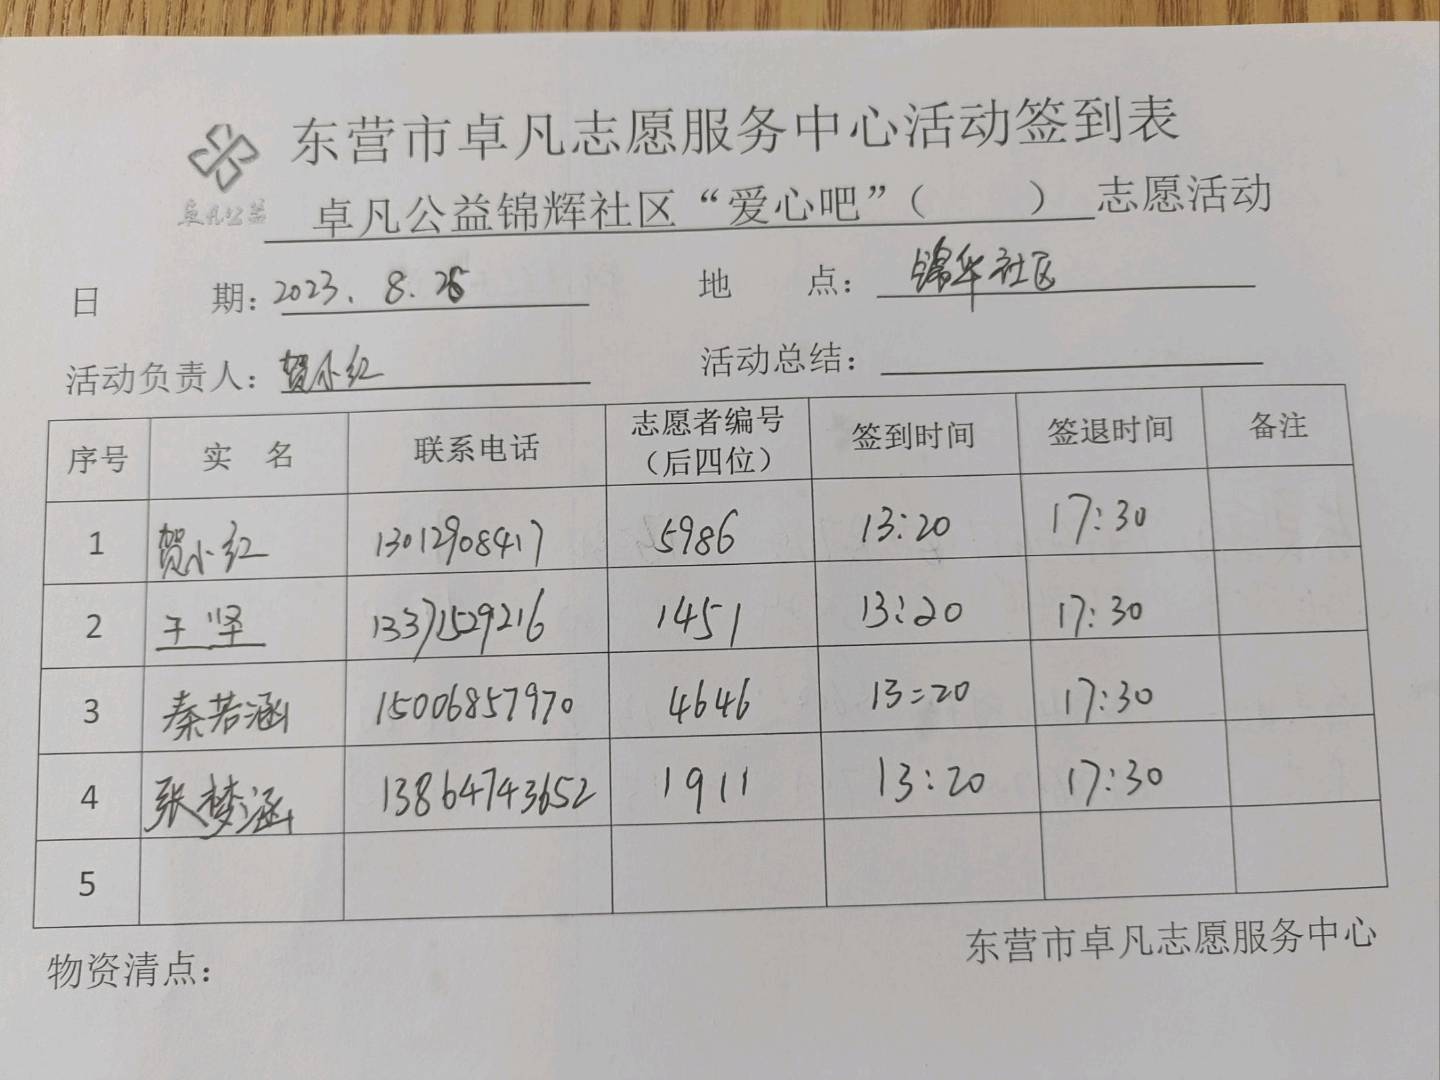 东营市卓凡志愿服务中心活动签到表
卓凡公益
卓凡公益锦辉社区“爱心吧”（ ）志愿活动
日 期：2023.8.26 地 点：锦华社区
活动负责人：贺小红 活动总结：
序号 实 名 联系电话 志愿者编号（后四位） 签到时间 签退时间 备注
1 贺小红 13012908417 5986 13:20 17:30
2 王坚 13371529216 1451 13:20 17:30
3 秦若涵 15006857970 4646 13:20 17:30
4 张梦涵 13864743652 1911 13:20 17:30
5
物资清点： 东营市卓凡志愿服务中心